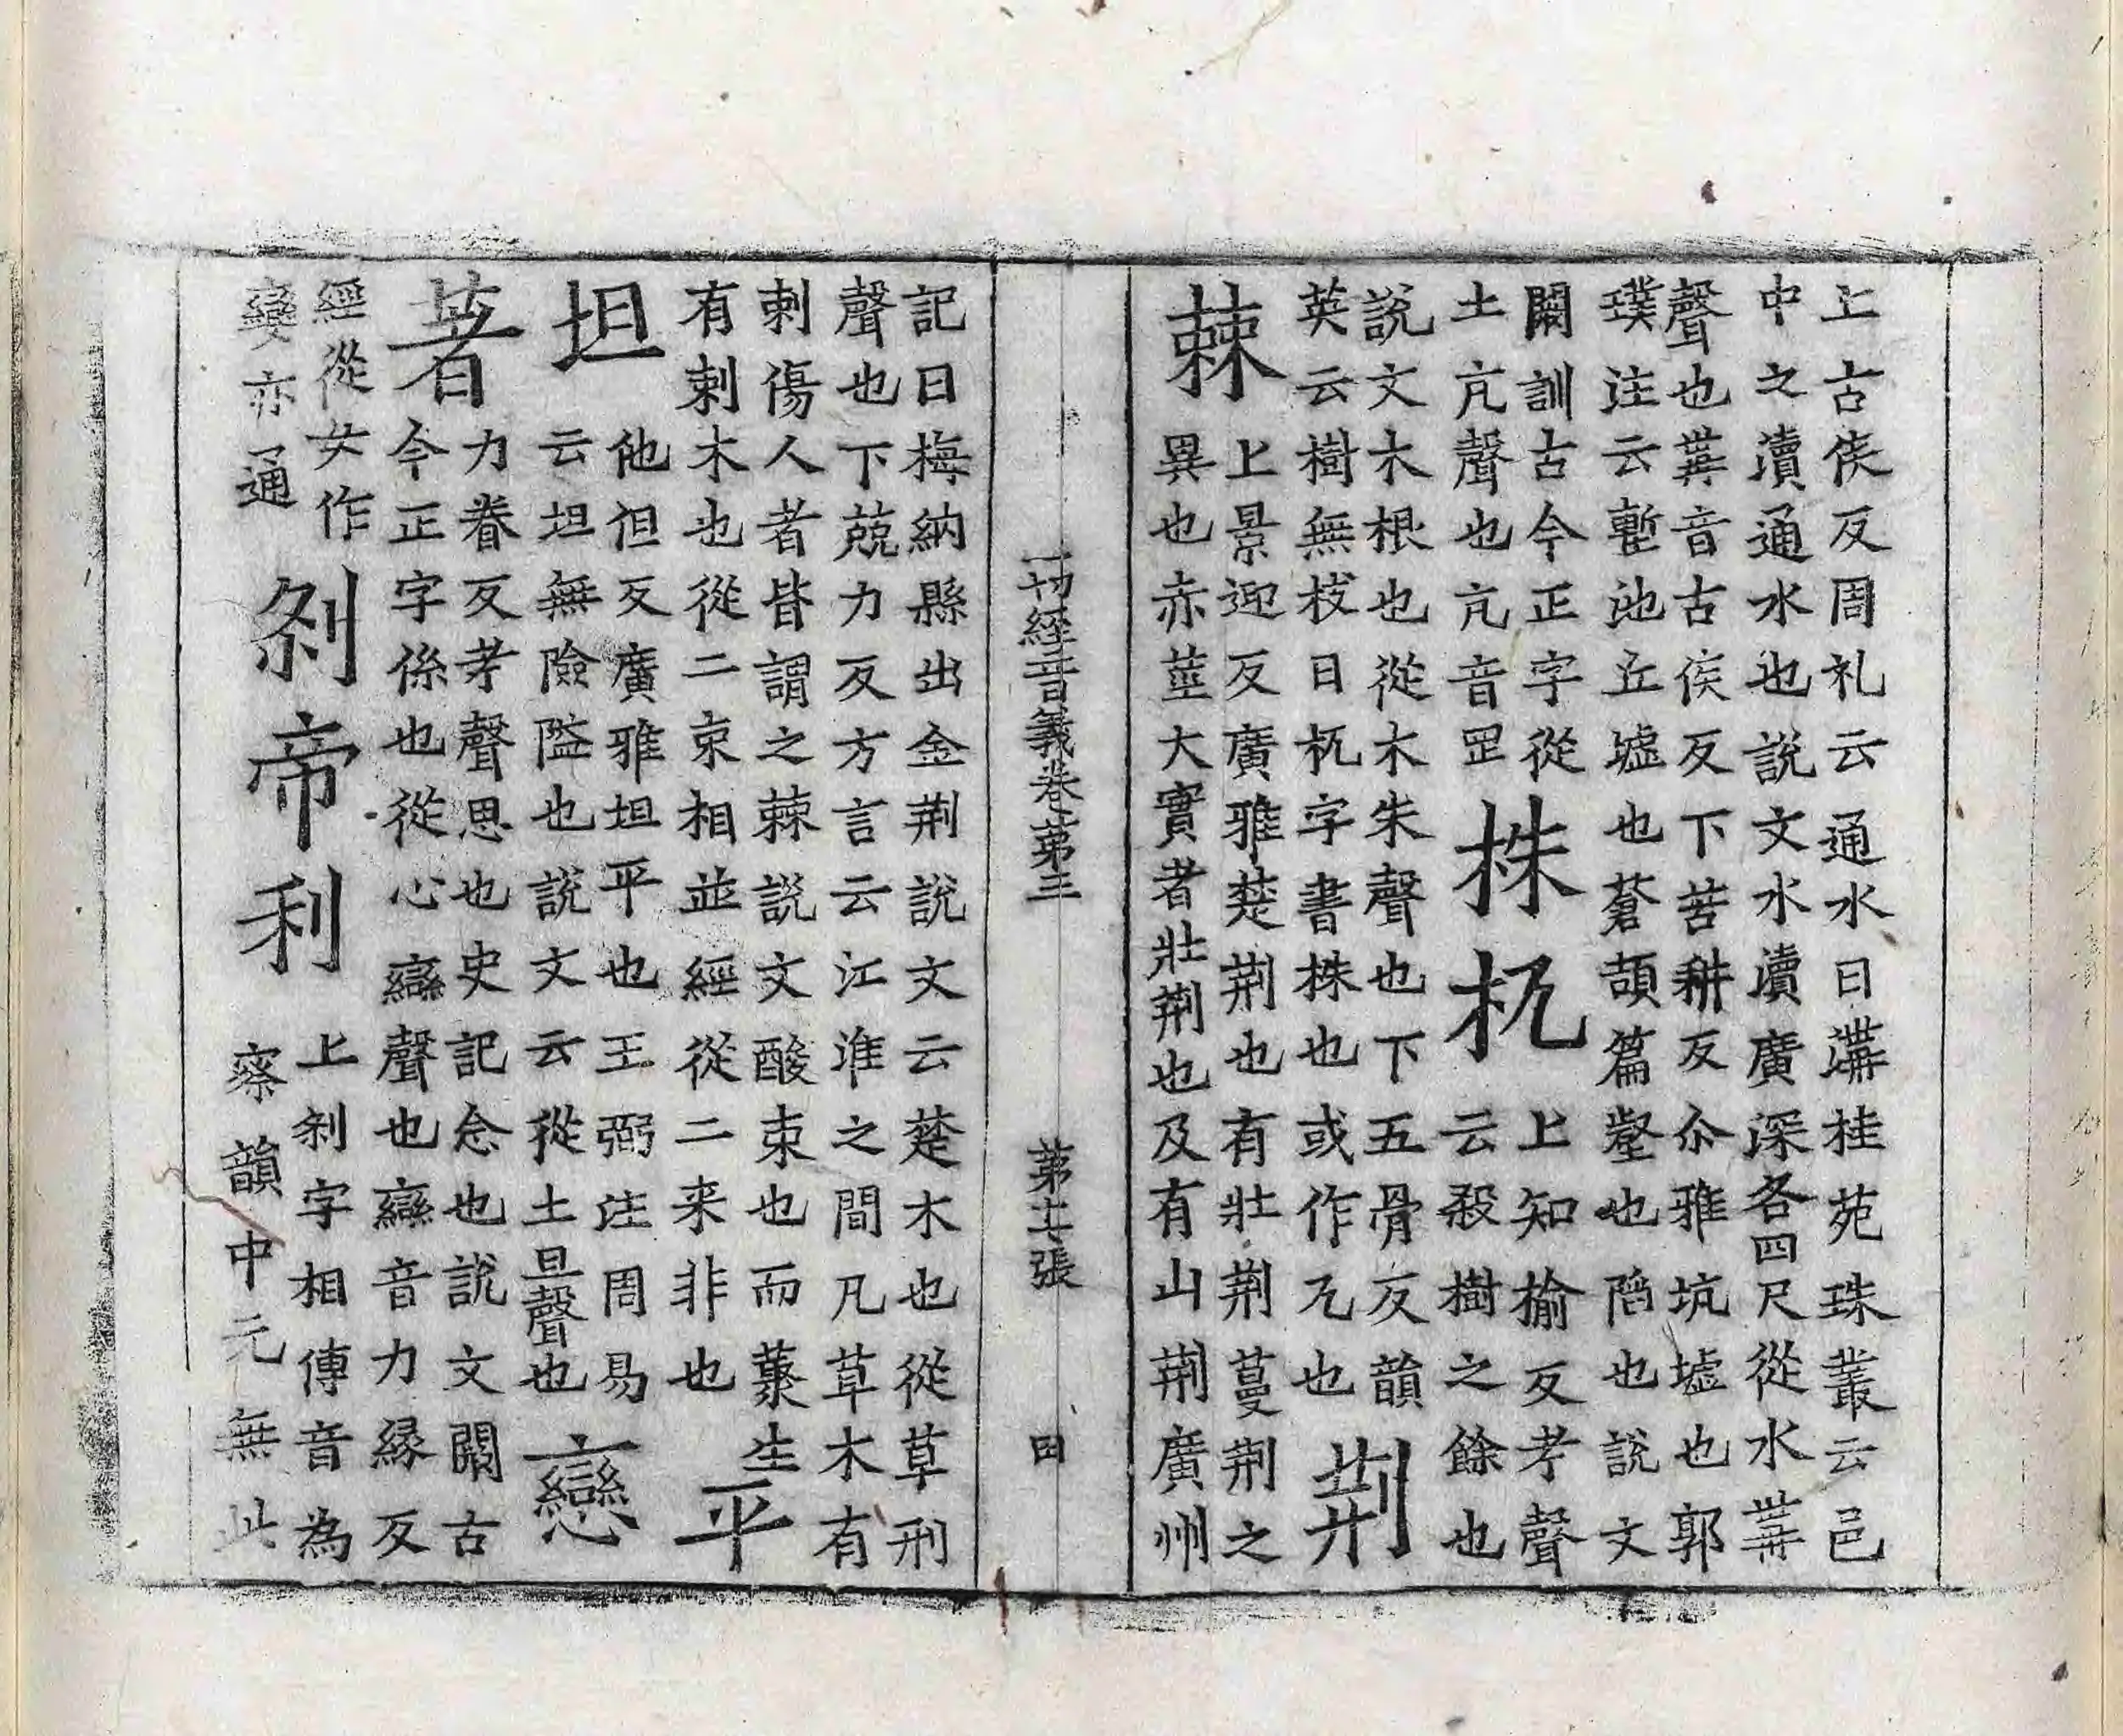 上古侯反周礼云通水曰溝桂苑珠叢云邑
中之瀆通水也說文水瀆廣深各四尺從水冓
聲也冓音古侯反下苦耕反尒雅坑墟也郭
璞注云塹池丘墟也蒼頡篇壑也陷也說文
闕訓古今正字從
土亢聲也亢音罡
株杌
上知榆反考聲
云殺樹之餘也
說文木根也從木朱聲也下五骨反韻
英云樹無枝曰杌字書株也或作兀也
荊
棘
上景迎反廣雅楚荊也有壯荊蔓荊之
異也亦莖大實者壯荊也及有山荊廣州
一切經音義卷第三
第十七張
田
記曰梅納縣出金荊說文云楚木也從草刑
聲也下兢力反方言云江淮之間凡草木有
刺傷人者皆謂之棘說文酸朿也而藂生
有刺木也從二朿相並經從二来非也
平
坦
他但反廣雅坦平也王弼注周易
云坦無險隘也說文云從土旦聲也
戀
著
力眷反考聲思也史記念也說文闕古
今正字係也從心䜌聲也䜌音力緣反
經從女作
孌亦通
剎帝利
上剎字相傳音為
察韻中元無此